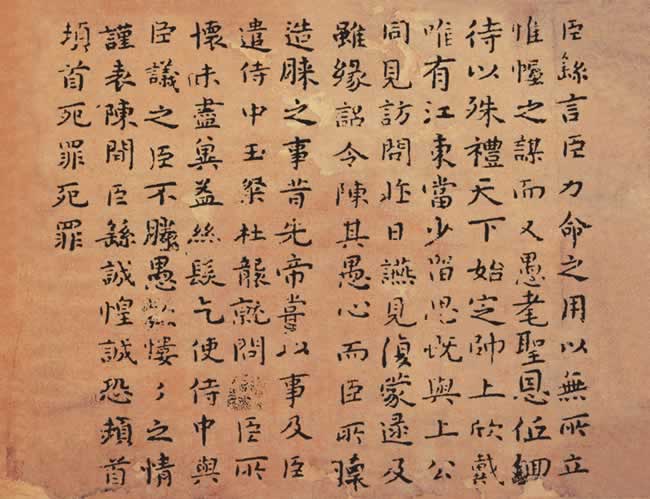 臣繇言臣力命之用以無所立
惟幄之謀而又愚耄聖恩低徊
待以殊禮天下始定帥上欣戴
唯有江東當少留思既與上公
同見訪問昨日讌見復蒙逮及
雖緣詔令陳其愚心而臣所懷
造膝之事昔先帝嘗以事及臣
遣侍中王粲杜襲就問臣所
懷未盡冀益絲髮乞使侍中與
臣議之臣不勝愚款慺々之情
謹表陳聞臣繇誠惶誠恐頓首
頓首死罪死罪